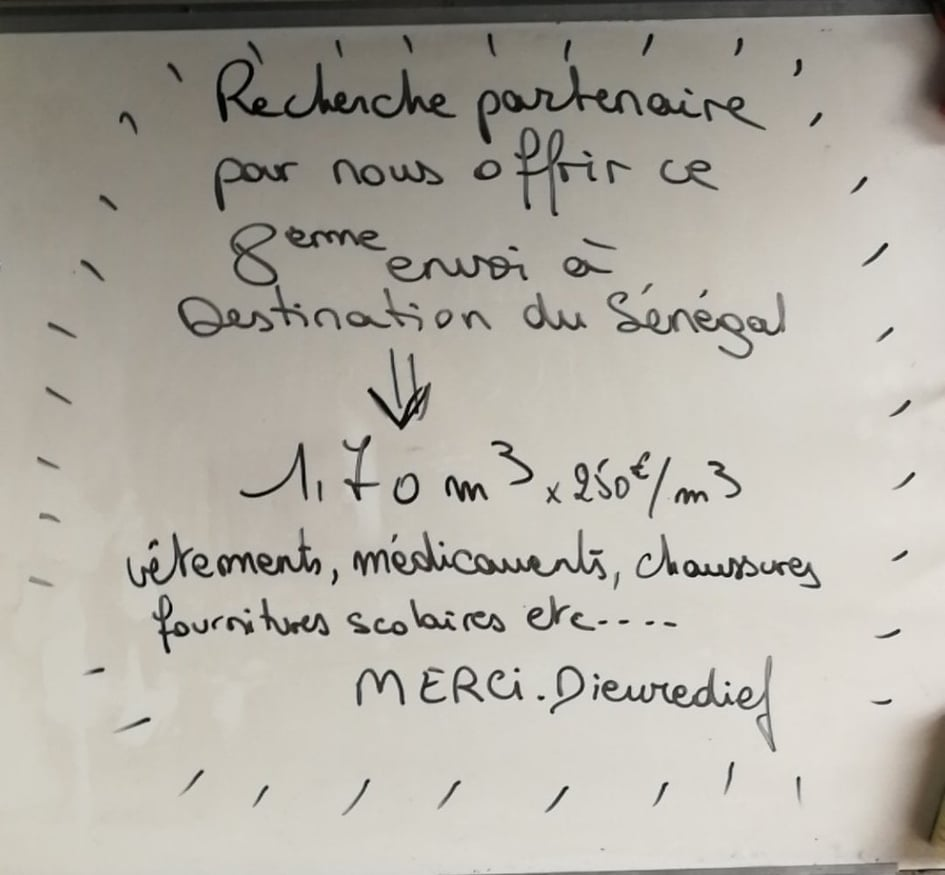 Recherche partenaire
pour nous offrir ce
8eme envoi à
Destination du Sénégal
1,70 m³ x 250€/m³
vêtements, médicaments, chaussures
fournitures scolaires etc....
MERCi. Dieuredief